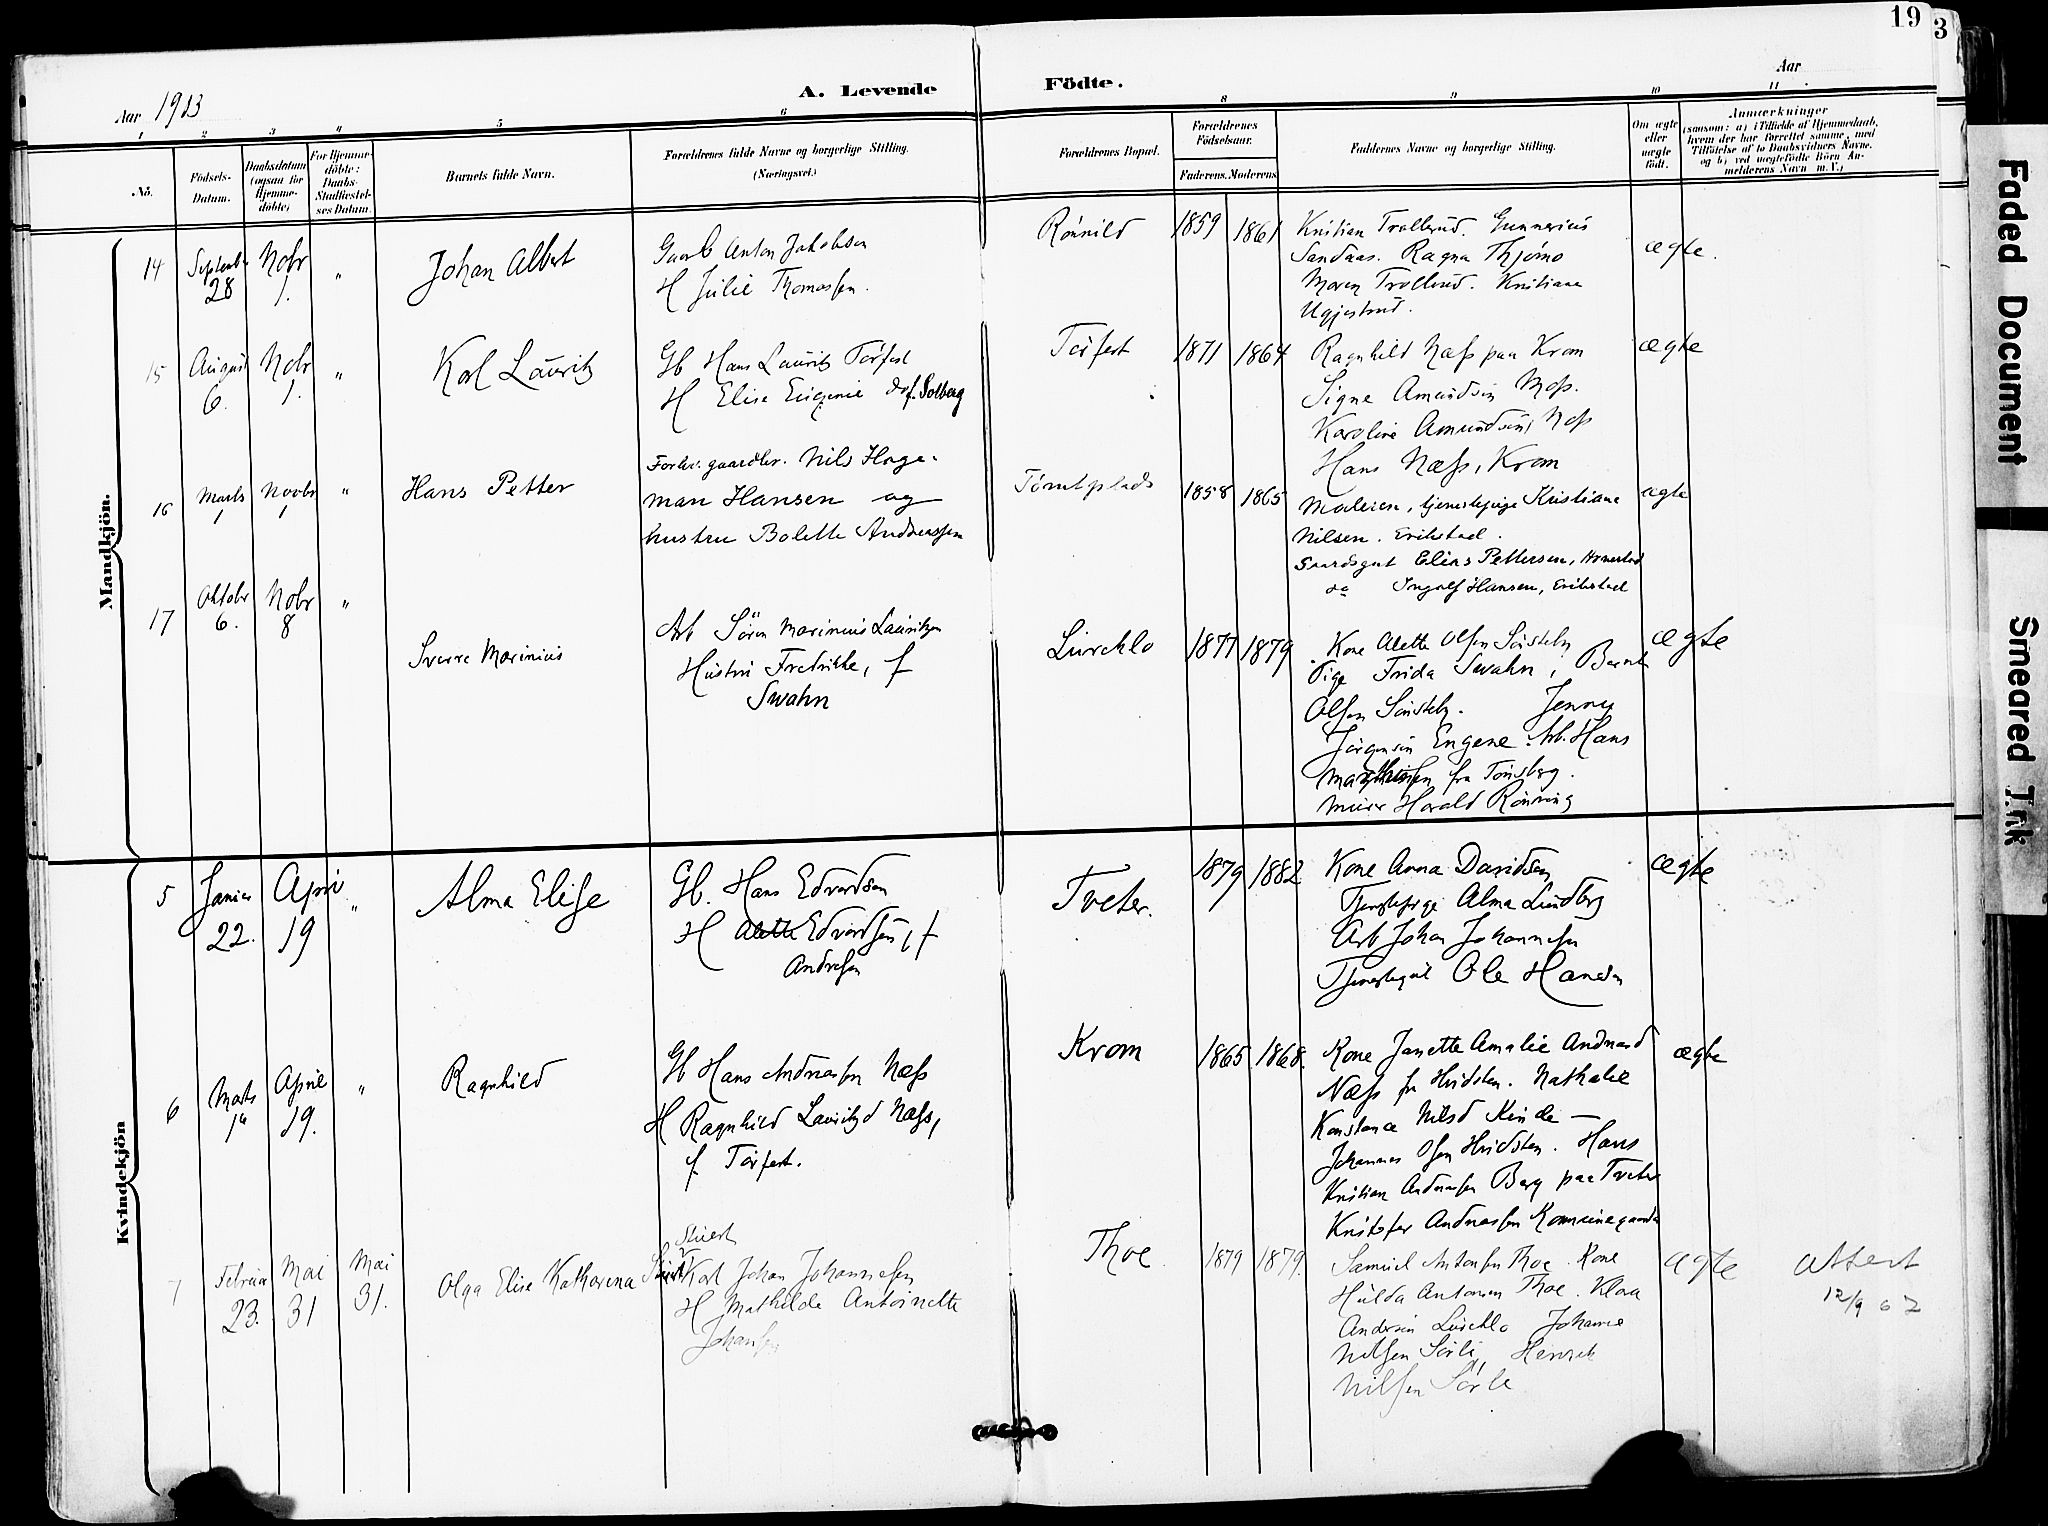 19
3
Aar 1903
A. Levende Födte.
Aar
1 2 3 4 5 6 8 9 10 11
No.
Födsels-Datum.
Daabsdatum (ogsaa for Hjemme-döbte)
For Hjemme-döbte: Daabs-Stadfæstel-ses Datum.
Barnets fulde Navn.
Forældrenes fulde Navne og borgerlige Stilling.
(Næringsvei.)
Forældrenes Bopæl.
Forældrenes Födselsaar.
Faderens. Moderens
Faddernes Navne og borgerlige Stilling.
Om ægte eller uægte födt.
Anmærkninger
(saasom: a) i Tilfælde af Hjemmedaab,
hvem der har forrettet samme, med
Tilföielse af to Daabsvidners Navne,
og b) ved uægtefödte Börn An-
melderens Navn m.V.)
Mandkjön.
14 Septembr 28 Nobr 1. " Johan Albert
Gaarb Anton Jakobsen
H Julie Thomassen.
Rönnild 1859 1861
Kristian Trollerud. Gunnerius
Sandaas. Ragna Thjömö
Maren Trollerud. Kristiane
ægte.
15 August 6. Nobr 1. " Karl Lauritz
Gb Hans Lauritz Torfest
H Elise Eugenie f. Solberg
Torfest 1871 1864
Ragnhild Næss paa Krom
Signe Amundsen Moss.
Karoline Amundsen, Moss
Hans Næss, Krom
ægte
16 Marts 1 Novbr 1 " Hans Petter
Forhv. gaardbr. Nils Hage-
man Hansen og
hustru Bolette Andreassen
Tomtplads 1858 1865
Kristiane
Nilsen. Erikstad.
Gaardsgut Elias Pettersen,
do Ingolf Hansen, Erikstad
ægte
17 Oktobr 6. Nobr 8 " Sverre Marinius
Arb Sören Marinius Lauritzen
Hustru Fredrikke, f
Swahn
1877 1879
Kone Alette Olsen
Pige Frida Swahn, Bernt
Olsen Jenny
Jörgensen Engene. Arb. Hans
fra Tönsberg.
Murer Harald Rönning
ægte
Kvindekjön
5 Januar 22. April 19 " Alma Elise
Gb. Hans Edvardsen
H Alette Edvardsen, f
Andresen
Tveter. 1879 1882
Kone Anna Davidsen
Tjenestepige Alma Lundberg
Arb Johan Johannesen
Tjenestegut Ole Hansen
ægte
6 Marts April 19. " Ragnhild
Gb Hans Andreassen Næss
H Ragnhild Lauritzd Næss,
f Torfest.
Krom 1865 1868.
Kone Janette Amalie Andreasd
Næss fra Hvidsten. Nathalie
Konstance Nilsd Kinde —
Johannes Olsen Hvidsten. Hans
Kristian Andreassen Berg paa Tveter
Kristofer Andreassen
ægte
7 Februar 23. Mai 31 Mai 31. Olga Elise Katharina
Karl Johan Johannesen
H Mathilde Antoinette
Johansen
Thoe 1879 1879.
Samuel Antonsen Thoe. Kone
Hulda Antonsen Thoe. Klara
Andersen Johanne
Nilsen Sörli, Henrik
Nilsen Sörle
ægte
Attest
12/9 62
Faded Document
Smeared Ink